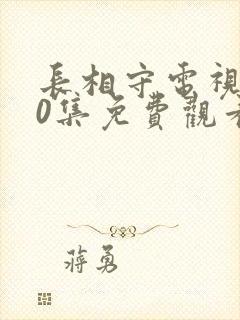 長相守電視
0集免費觀看
蔣勇